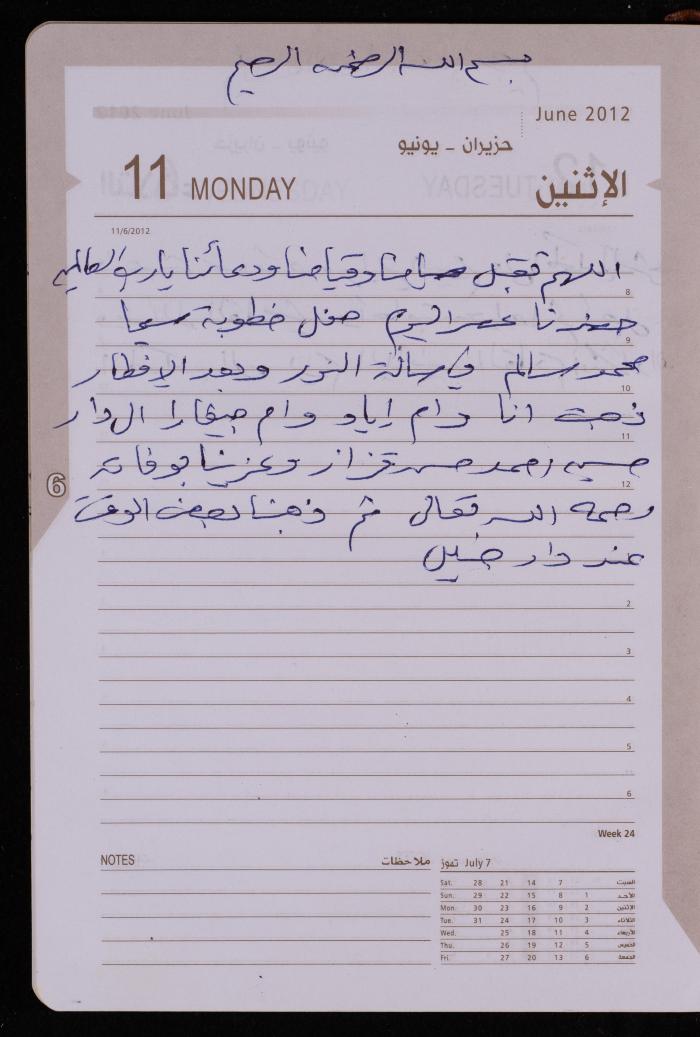 بسم الله الرحمن الرحيم
June 2012
حزيران - يونيو
11 MONDAY
الإثنين
11/6/2012
اللهم تقبل صيامنا وقيامنا ودعائنا يارب العالمين
8
حضرنا عصر اليوم حفل خطوبة
9
محمد سالم في صالة النور وبعد الإفطار
10
ذهبت انا وام اياد وام جيفارا الى دار
11
حسين احمد حسن قزاز وعزينا بوفاته
6
12
رحمه الله تعالى ثم ذهبنا لبعض الوقت
عند دار خليل
2
3
4
5
6
Week 24
NOTES ملاحظات
July 7 تموز
Sat. 28 21 14 7 السبت
Sun. 29 22 15 8 1 الأحد
Mon. 30 23 16 9 2 الإثنين
Tue. 31 24 17 10 3 الثلاثاء
Wed. 25 18 11 4 الأربعاء
Thu. 26 19 12 5 الخميس
Fri. 27 20 13 6 الجمعة